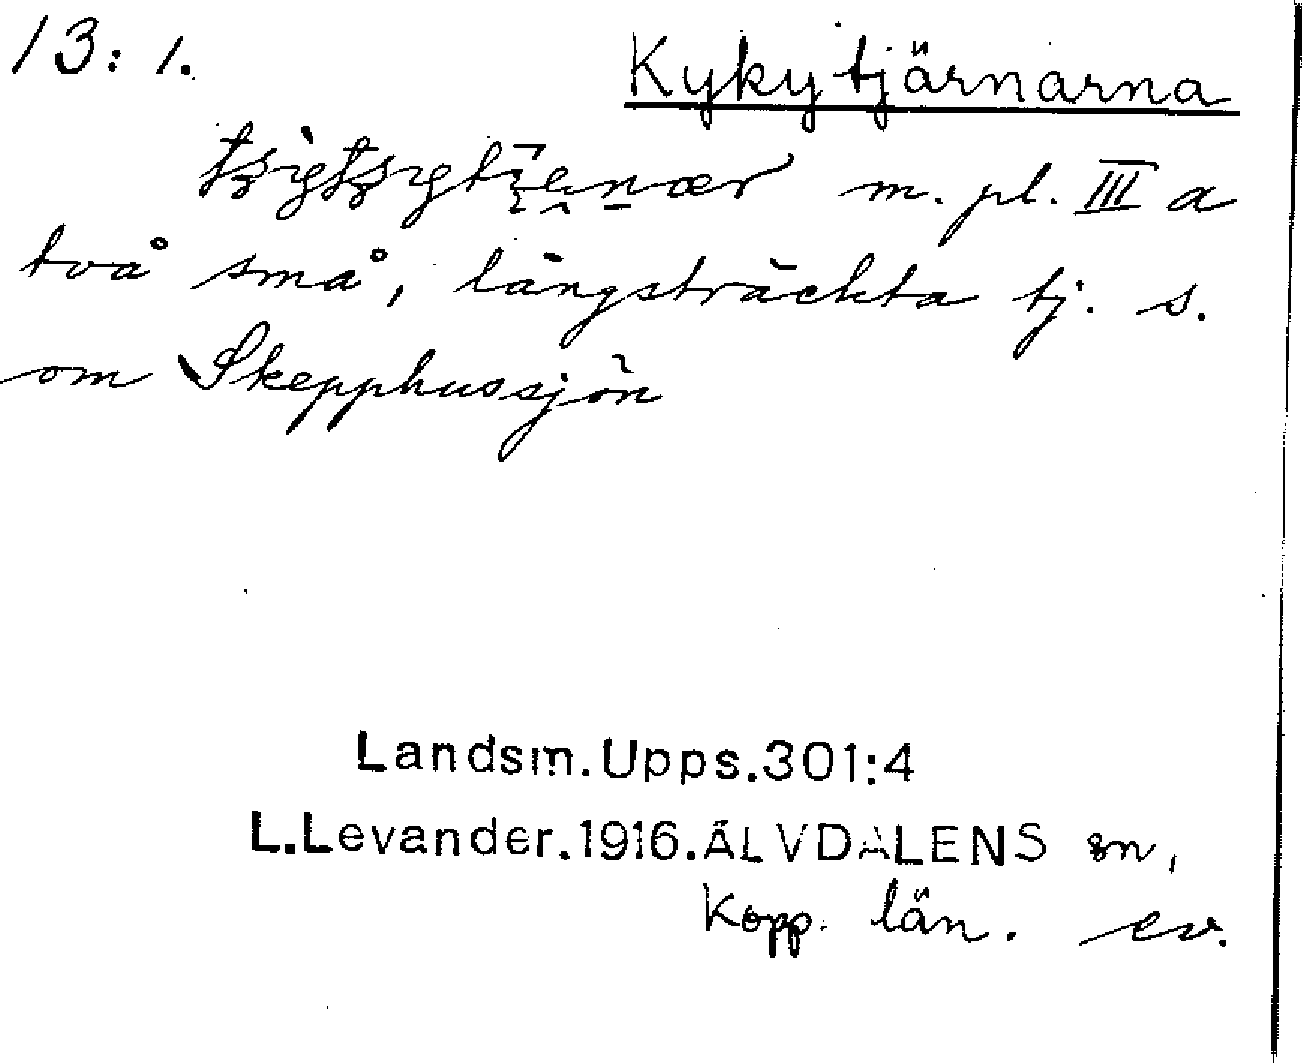 13:1.
Kykytjärnarna
m. pl. III a
två små, långsträckta tj. s.
om Skepphussjön
Landsm.Upps.301:4
L.Levander.1916.ÄLVDALENS sn,
Kopp. län. ev.